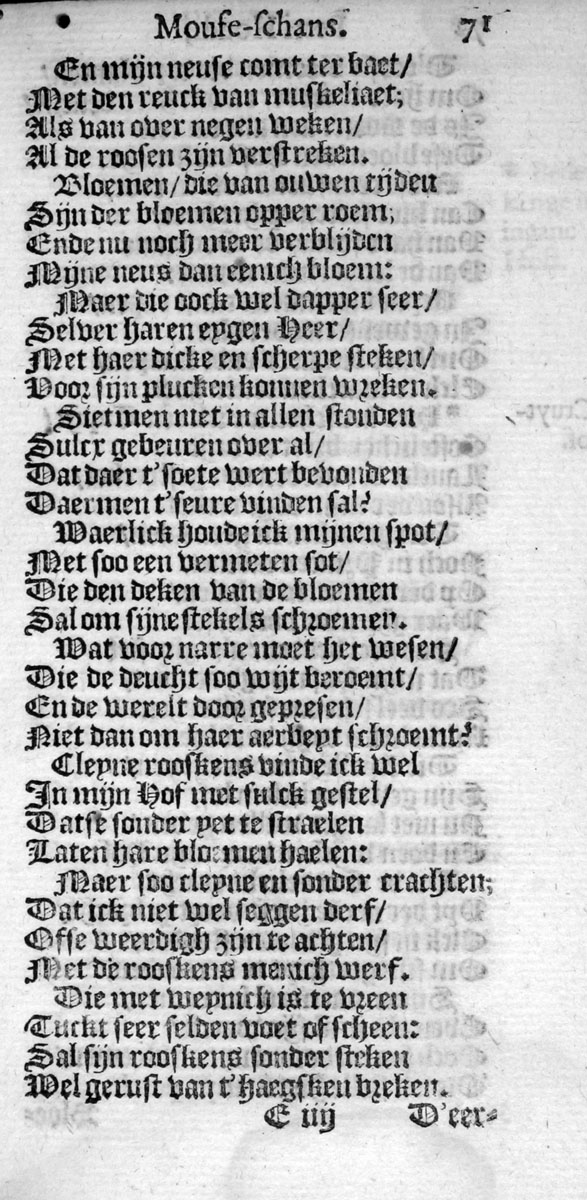 Moufe-schans. 71
En mijn neuse comt ter baet/
Met den reuck van muskeliaet;
Als van over negen weken/
Al de roosen zijn verstreken.
Bloemen/ die van ouwen tijden
Sijn der bloemen opper roem;
Ende nu noch meer verblijden
Mijne neus dan eenich bloem:
Maer die oock wel dapper seer/
Selver haren eygen Heer/
Met haer dicke en scherpe steken/
Voor sijn plucken konnen wreken.
Sietmen niet in allen stonden
Sulcx gebeuren over al/
Dat daer t'soete wert bevonden
Daermen t'seure vinden sal?
Waerlick houde ick mijnen spot/
Met soo een vermeten sot/
Die den deken van de bloemen
Sal om sijne stekels schroemen.
Wat voor narre moet het wesen/
Die de deucht soo wijt beroemt/
En de werelt door gepresen/
Niet dan om haer aerbeyt schroemt?
Cleyne rooskens vinde ick wel
In mijn Hof met sulck gestel/
Datse sonder yet te straelen
Laten hare bloemen haelen:
Maer soo cleyne en sonder crachten;
Dat ick niet wel seggen derf/
Ofse weerdigh zijn te achten/
Met de rooskens menich werf.
Die met weynich is te vreen
Tuckt seer selden voet of scheen:
Sal sijn rooskens sonder steken
Wel gerust van t'haegsken breken.
E iiij D'eer-